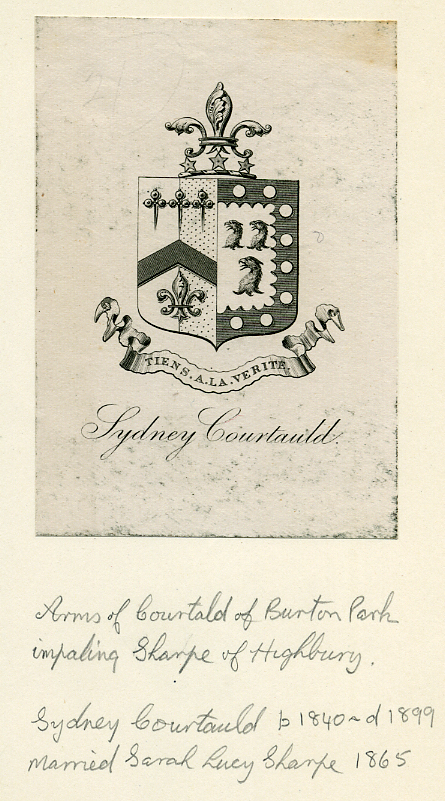 TIENS.A.LA.VERITE.
Sydney Courtauld.
Arms of Courtald of Burton Park
impaling Sharpe of Highbury.
Sydney Courtauld b 1840 ~ d 1899
Married Sarah Lucy Sharpe 1865